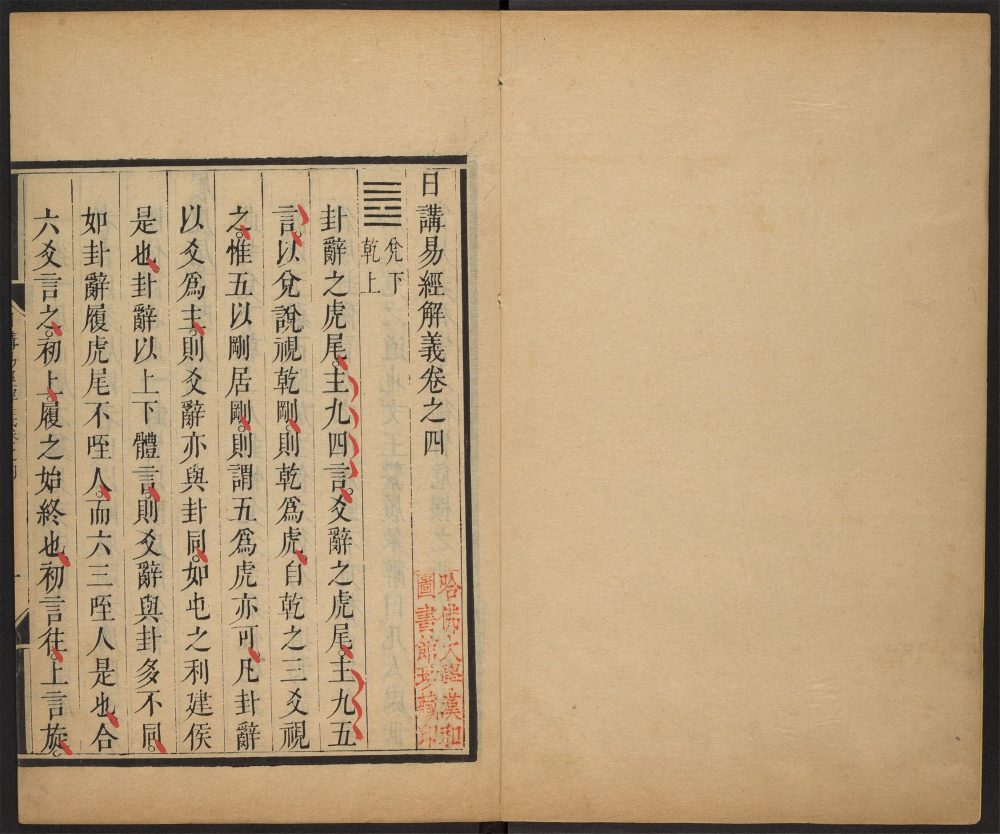 日講易經解義卷之四
䷉ 兌下
乾上
卦辭之虎尾主九四言爻辭之虎尾主九五
言以兌說視乾剛則乾爲虎自乾之三爻視
之惟五以剛居剛則謂五爲虎亦可凡卦辭
以爻爲主則爻辭亦與卦同如屯之利建侯
是也卦辭以上下體言則爻辭與卦多不同
如卦辭履虎尾不咥人而六三咥人是也合
六爻言之初上履之始終也初言往上言旋
哈佛大學漢和
圖書館珍藏印